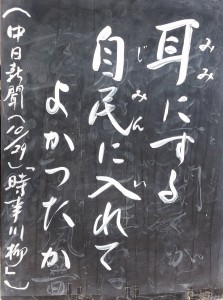 耳にする
自民に入れて
よかつたか
(中日新聞(10/29)「時事川柳」)